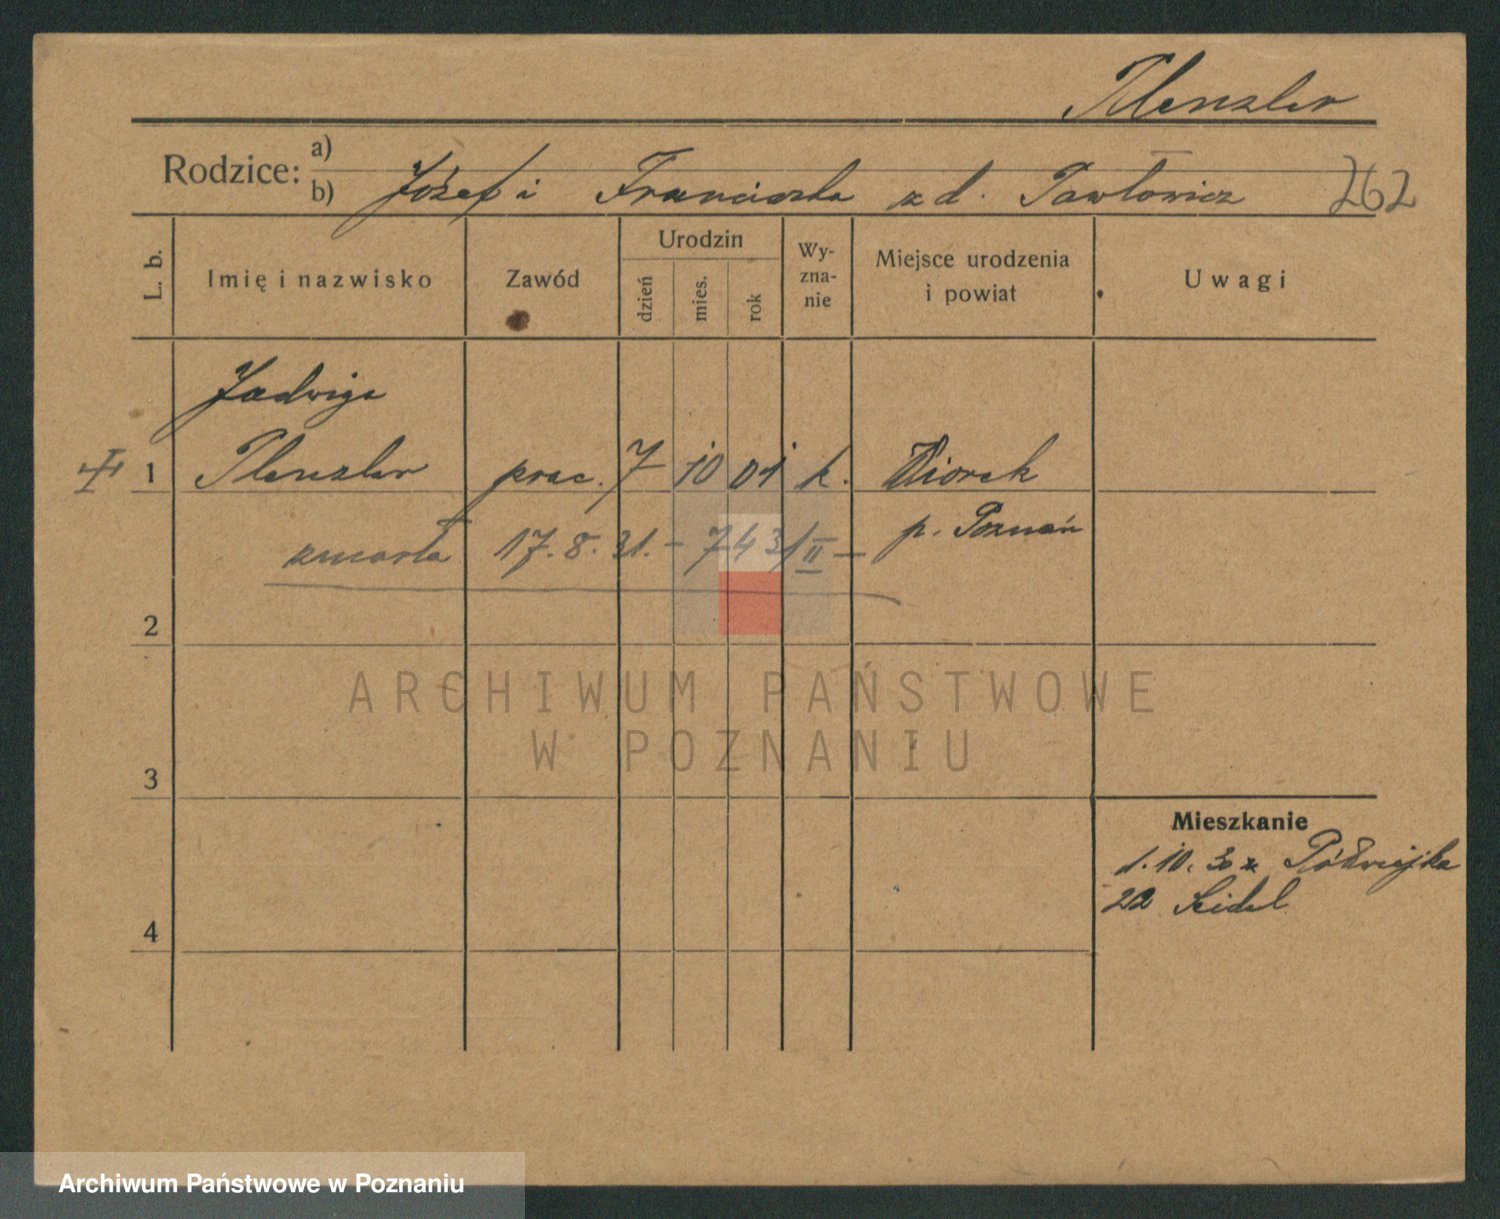 Plenzler
Rodzice: a)
b) Józef i Franciszka z d. Pawłowicz 262
L. b. Imię i nazwisko Zawód Urodzin dzień mies. rok Wy-zna-nie Miejsce urodzenia i powiat Uwagi
Jadwiga
1 Plenzler prac. 7 10 01 k. Piorek
p. Poznań
zmarła 17. 8. 31. – 743/II –
2
ARCHIWUM PAŃSTWOWE
W POZNANIU
3
Mieszkanie
1. 10. 30 z Półwiejska
22 Seidel
4
Archiwum Państwowe w Poznaniu